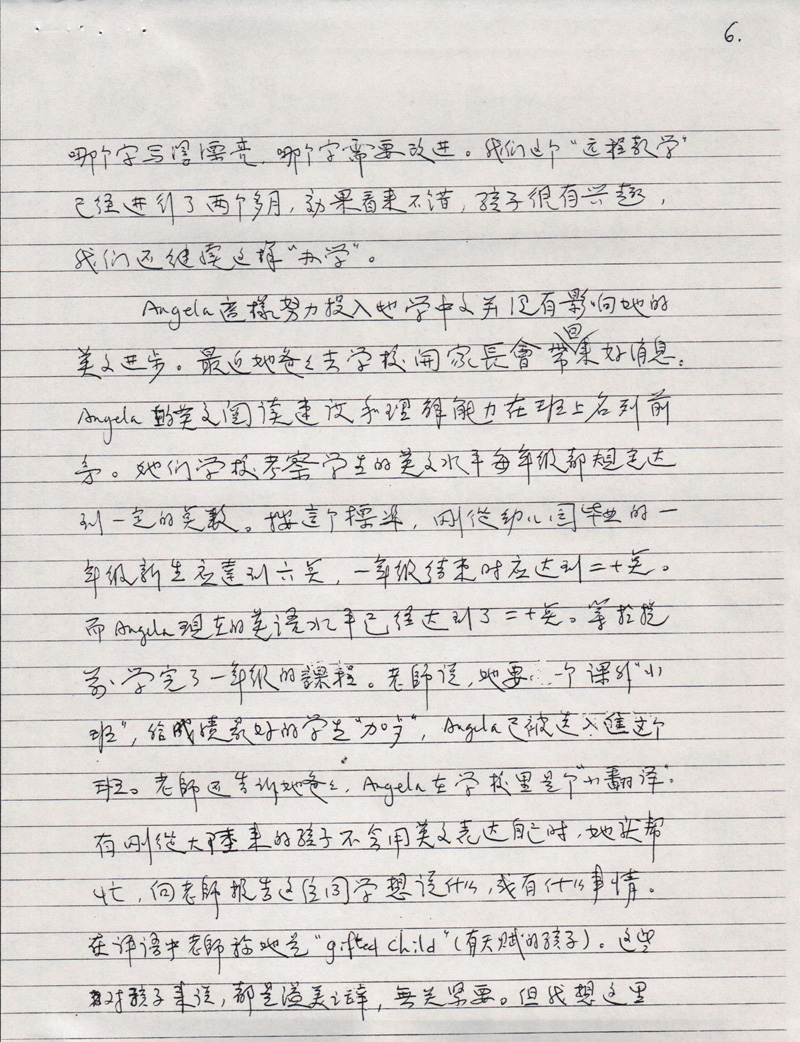 6.
哪个字写得漂亮，哪个字需要改进。我们这个“远程教学”
已经进行了两个多月，効果看来不错，孩子很有兴趣，
我们还继续这样“办学”。
Angela 这樣努力投入她学中文并没有影响她的
英文进步。最近她爸爸去学校開家長會带回好消息。
Angela 的英文阅读速度和理解能力在班上名列前
茅。她们学校考察学生的英文水平每年级都规定达
到一定的点数。按這个標准，刚從幼儿园毕业的一
年级新生应達到六点，一年级结束时应达到二十点。
而 Angela 现在的英语水平已经达到了二十点。等於提
前学完了一年级的課程。老師说，她要一个课外“小
班”，给成績最好的学生“加岁”，Angela 已被选入進这个
班。老師还告诉她爸爸，Angela 在学校里是个“小翻译”。
有刚從大陸来的孩子不会用英文表达自己时，她就帮
忙，向老師报告这位同学想说什么，或有什么事情。
在评语中老師称她是“gifted child”（有天赋的孩子）。这些
对孩子来说，都是溢美之辞，無关紧要。但我想这里